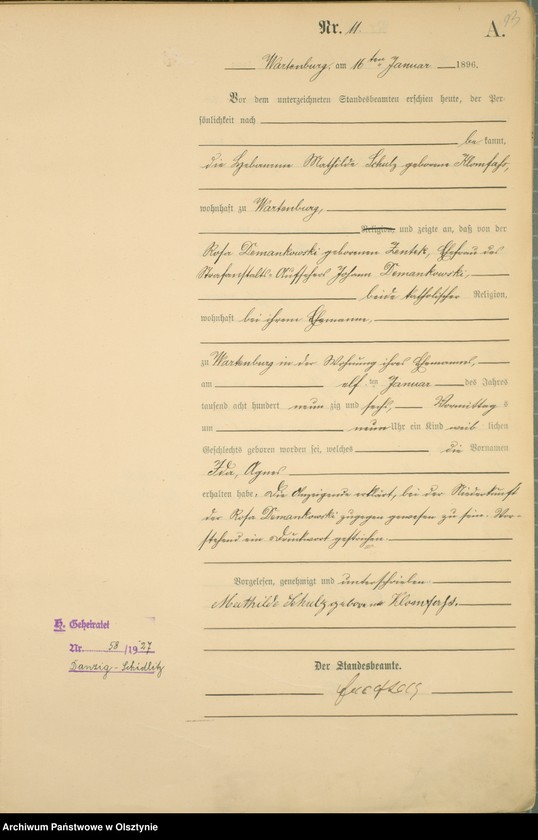 93
Nr. 11
A.
Wartenburg, am 16ten Januar 1896.
Vor dem unterzeichneten Standesbeamten erschien heute, der Per-
sönlichkeit nach
be kannt,
die Hebamme Mathilde Schulz geborene Klomfahs,
wohnhaft zu Wartenburg,
Religion, und zeigte an, daß von der
Rosa Demankowski geborenen Zentek, Ehefrau des
Strafanstalts-Aufsehers Johann Demankowski,
beide katholischer Religion,
wohnhaft bei ihrem Ehemanne,
zu Wartenburg in der Wohnung ihres Ehemannes,
am elf ten Januar des Jahres
tausend acht hundert neun zig und sechs, Vormittag s
um neun Uhr ein Kind weib lichen
Geschlechts geboren worden sei, welches die Vornamen
Ida, Agnes
erhalten habe. Die Anzeigende erklärt, bei der Niederkunft
der Rosa Demankowski zugegen gewesen zu sein. Vor-
stehend ein Druckwort gestrichen.
Vorgelesen, genehmigt und unterschrieben
Mathilde Schulz geborene Klomfahs.
H. Geheiratet
Nr. 58 /1927
Danzig-Schidlitz
Der Standesbeamte.
Archiwum Państwowe w Olsztynie